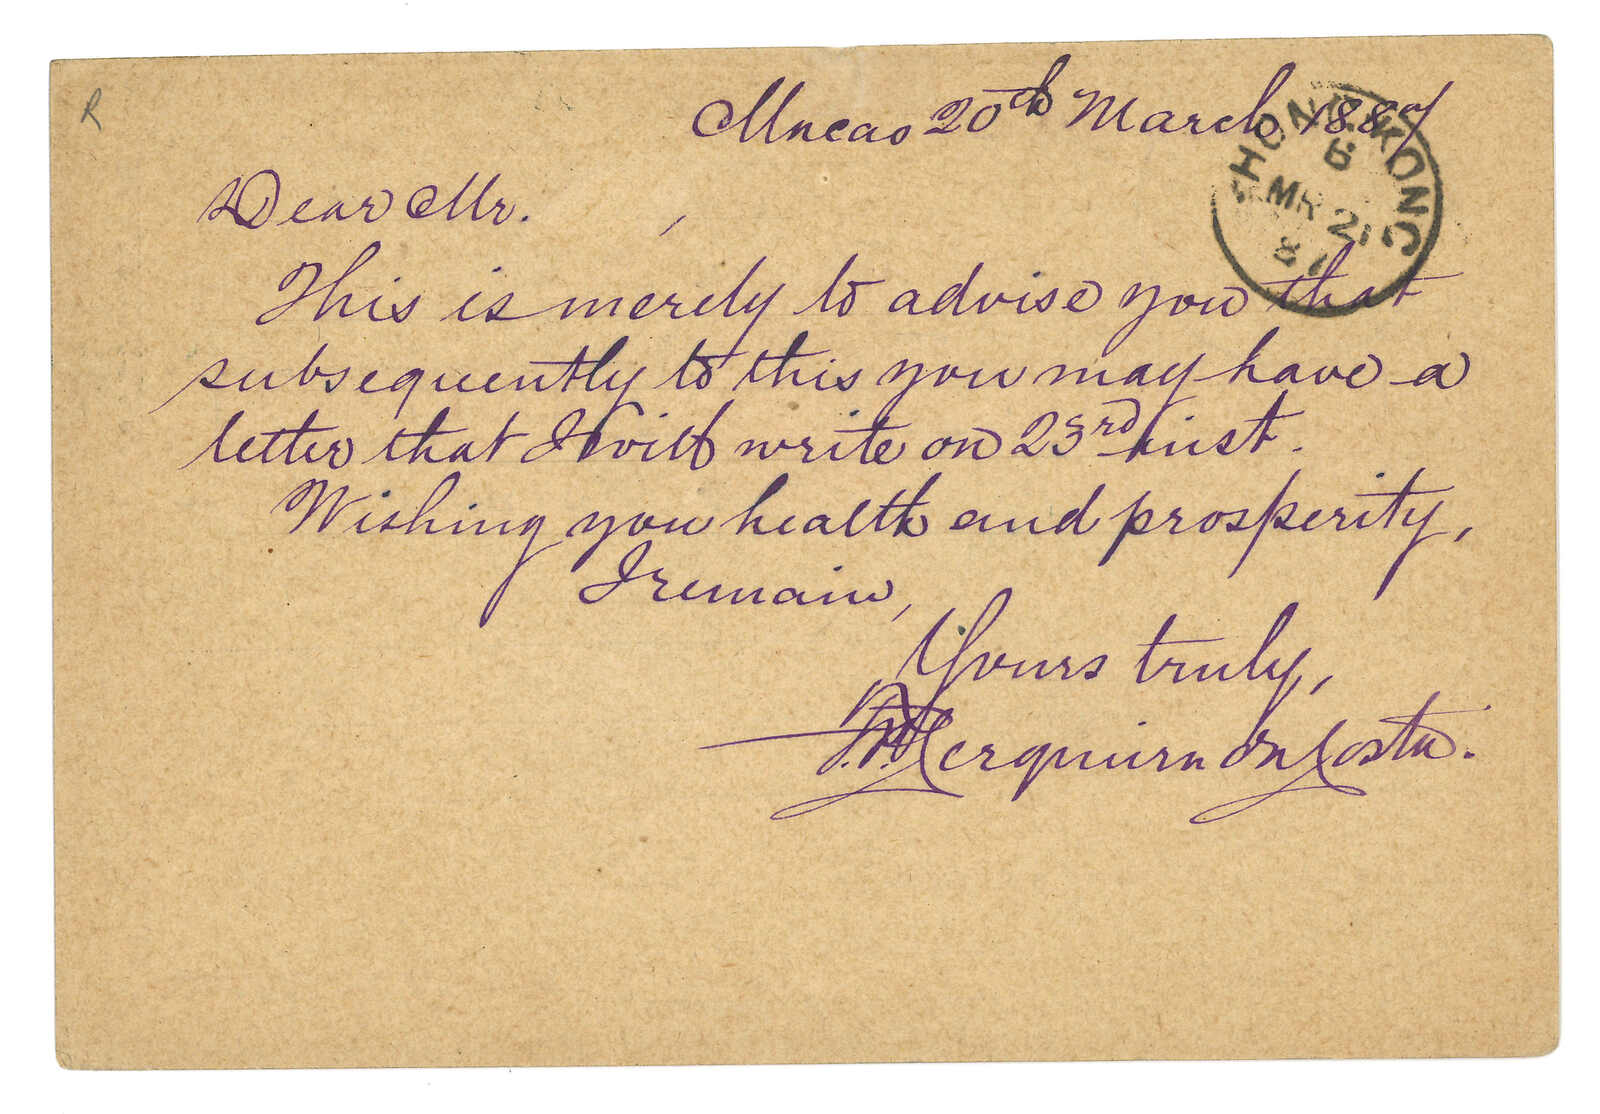 R
Macao 20th March 1887
HONG KONG
6
MR 21
87
Dear Mr. ,
This is merely to advise you that
subsequently to this you may have a
letter that I will write on 23rd inst.
Wishing you health and prosperity,
I remain,
Yours truly,
Cerqueira da Costa.